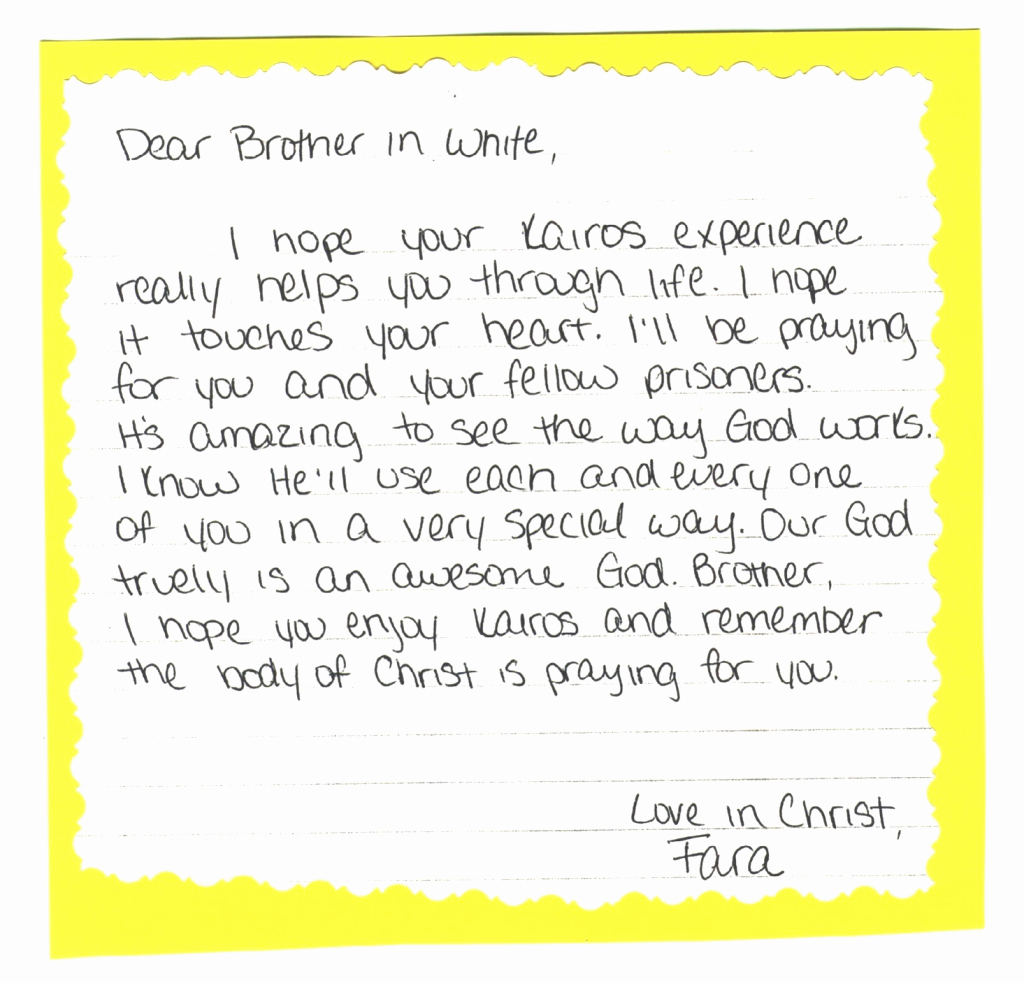 Dear Brother in White,
I hope your Kairos experience
really helps you through life. I hope
it touches your heart. I'll be praying
for you and your fellow prisoners.
It's amazing to see the way God works.
I know He'll use each and every one
of you in a very special way. Our God
truely is an awesome God. Brother,
I hope you enjoy Kairos and remember
the body of Christ is praying for you.
Love in Christ,
Fara